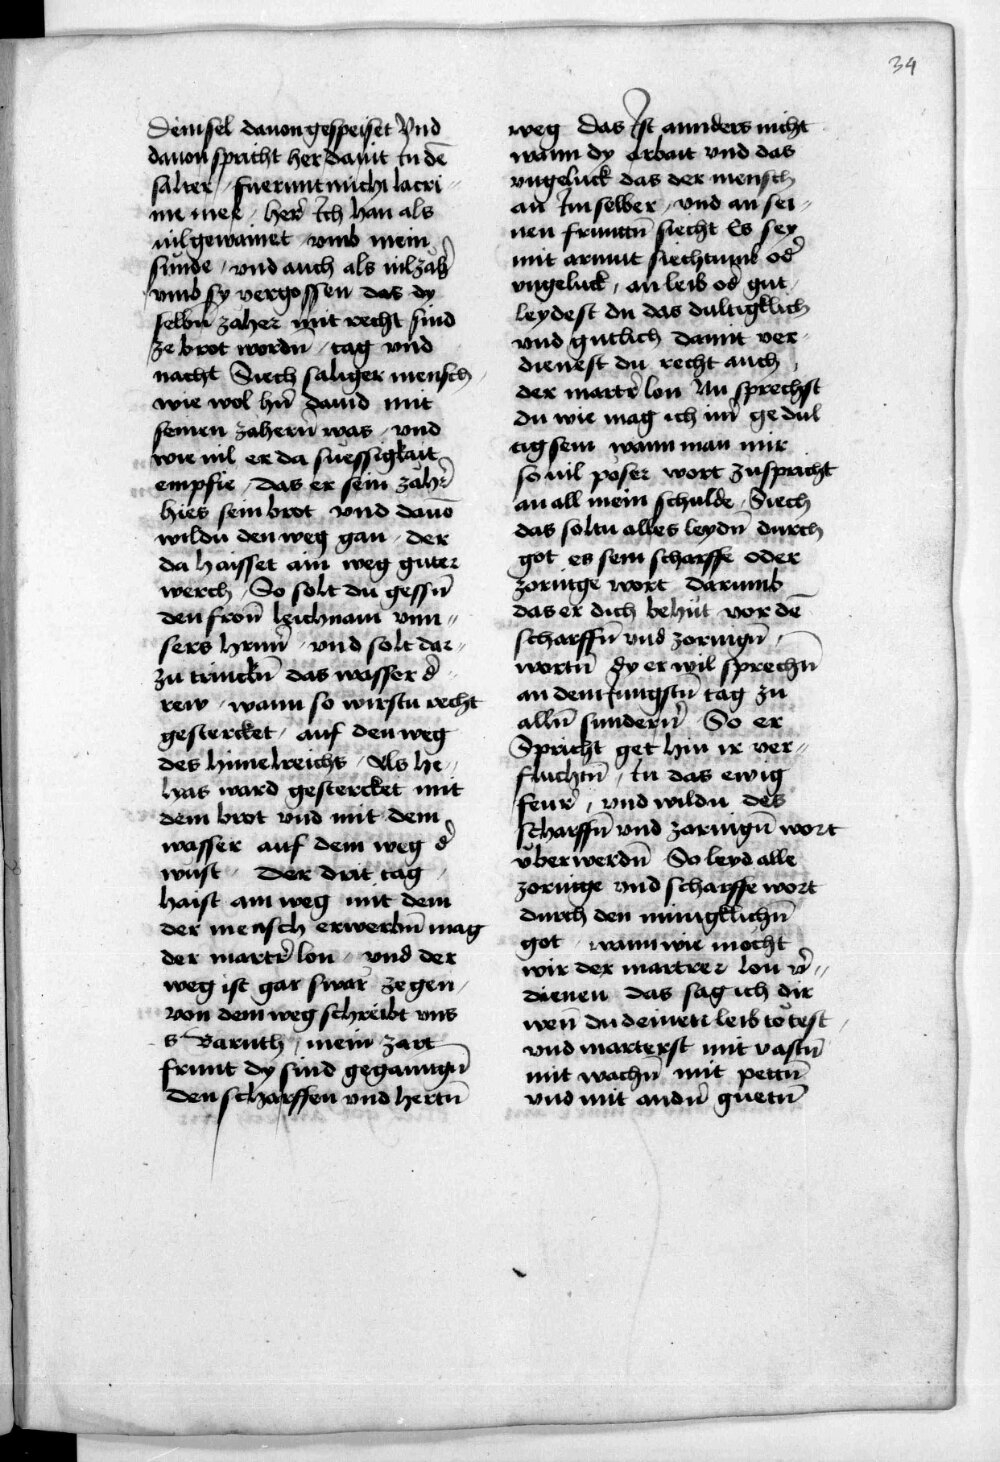 34
Dein sel dauon gespeiset Vnd
dauon spricht her dauit Jn dē
salter / fuerunt michi lacri〃
me mee / her̄ Jch han als
uil gewainet vmb mein
sünde / vnd auch als uil zäh̄
vmb sy vergossen das dy
selbn̄ zäher mit recht sind
ze brot wordn̄ / tag vnd
nacht Siech säliger mensch
wie wol hn̄ dauid mit
seinen zähern̄ was / vnd
wie uil er da süessigkait
empfie / das er sein zäh̄r
hies sein brot vnd dauō
wildu den weg gan / der
da haisset ain weg guter
werch / So solt du gessn̄
den fron̄ leichnam vnn〃
sers hrnn̄ / vnd solt dar〃
zu trinckn̄ das wasser d̄
rew / wann so wirstu recht
gestercket / auf den weg
des himelreichs / Als he〃
lias ward gestercket mit
dem brot vnd mit dem
wasser auf dem weg d̄
wüst / Der drit tag
haist ain weg mit dem
der mensch erwerbn̄ mag
der martr̄ lon / vnd der
weg ist gar swär ze gen /
von dem weg schreibt vns
s Baruth / mein zart
frunt dy sind gegangn̄
den scharffen vnd hertn̄
weg Das Jst annders nicht
wann dy Arbait vnd das
vngelück das der mensch
an Jm selber / vnd an sei〃
nen frunttn̄ siecht Es sey
mit armut siechtumb od̄
vngelück / an leib od̄ gut
leydest du das dultigklich
vnd gütlich damit ver〃
dienest du recht auch
der martr̄ lon Nu sprechst
du wie mag ich im̄ gedul
tig sein wann man mir
so uil pöser wort zuspricht
an all mein schulde / Siech
das soltu alles leydn̄ durch
got es sein scharffe oder
zornige wort darumb
das er dich behüt vor dē
scharffn̄ vnd zornign̄
wortn̄ dy er wil sprechn̄
an dem Jungstn̄ tag zu
alln̄ sündern̄ / So er
Spricht get hin ir ver〃
fluchtn̄ / Jn das ewig
feur̄ / vnd wildu des
scharffn̄ vnd zornign̄ wort
vberwerdn̄ So leyd alle
zornige vnd scharffe wort
durch den minigklichn̄
got / wann wie möcht
wir der martrer lon v̄〃
dienen das sag ich dir
wen̄ du deinen leib tötest
vnd marterst mit vastn̄
mit wachn̄ mit pettn̄
vnd mit andn̄ guetn̄